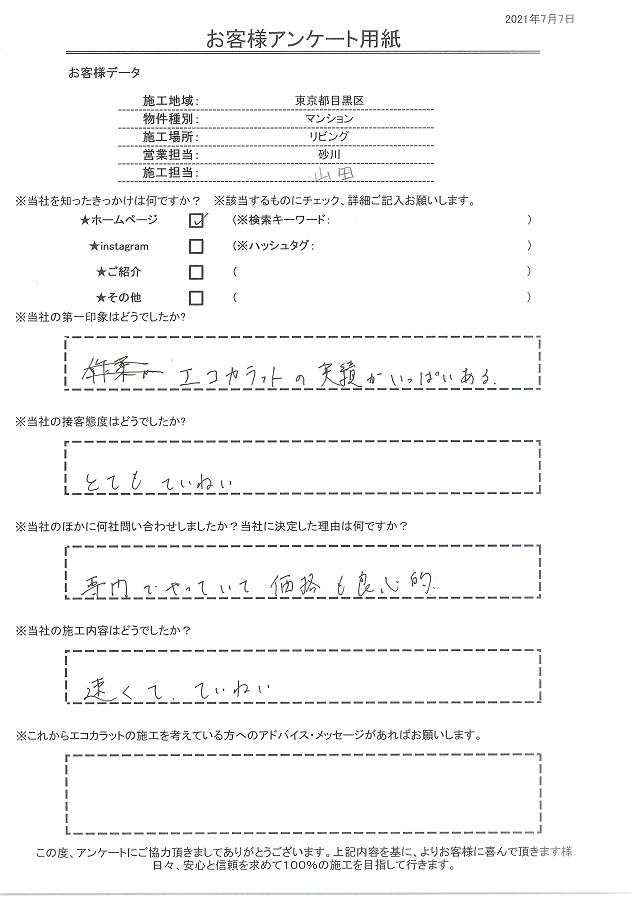 2021年7月7日
お客様アンケート用紙
お客様データ
施工地域： 東京都目黒区
物件種別： マンション
施工場所： リビング
営業担当： 砂川
施工担当： 山田
※当社を知ったきっかけは何ですか？ ※該当するものにチェック、詳細ご記入お願いします。
★ホームページ ☑ （※検索キーワード： ）
★instagram □ （※ハッシュタグ： ）
★ご紹介 □ （ ）
★その他 □ （ ）
※当社の第一印象はどうでしたか?
エコカラットの実績がいっぱいある.
※当社の接客態度はどうでしたか?
とてもていねい
※当社のほかに何社問い合わせしましたか？当社に決定した理由は何ですか？
専門でやっていて価格も良心的.
※当社の施工内容はどうでしたか？
速くて、ていねい
※これからエコカラットの施工を考えている方へのアドバイス・メッセージがあればお願いします。
この度、アンケートにご協力頂きましてありがとうございます。上記内容を基に、よりお客様に喜んで頂きます様
日々、安心と信頼を求めて100％の施工を目指して行きます。